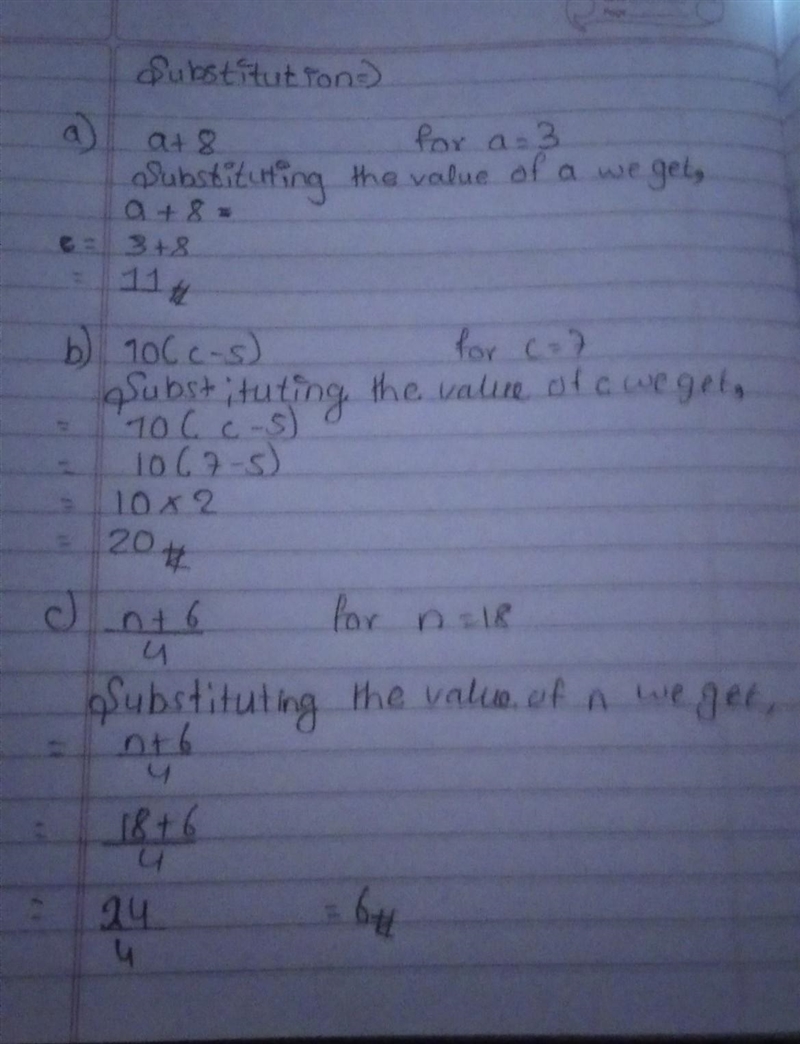 Substitution=)
a) a+8 for a=3
Substituting the value of a we get,
a + 8 =
= 3+8
= 11 #
b) 10(c-5) for c=7
Substituting the value of c we get,
= 10(c-5)
= 10(7-5)
= 10 x 2
= 20 #
c) n+6 for n=18
4
Substituting the value of n we get,
= n+6
4
= 18+6
4
= 24 = 6#
4